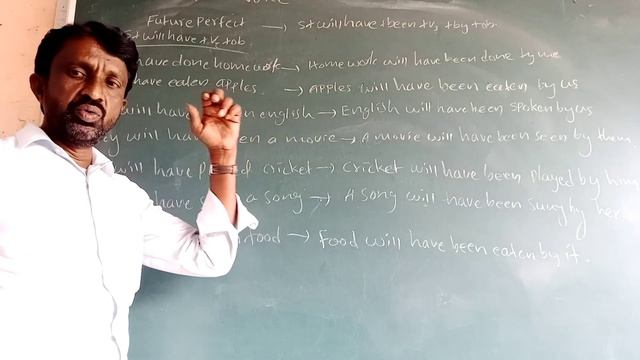 Future perfect → S+ will have + been + V3 + by + ob.
S+ will have + V3 + ob.
have done homework → Home work will have been done by me
have eaten apples. → Apples will have been eaten by us
will have english → English will have been spoken by us
will a movie → A movie will have been seen by them.
will have cricket → cricket will have been played by him
have a song → A song will have been sung by her
food → food will have been eaten by it.